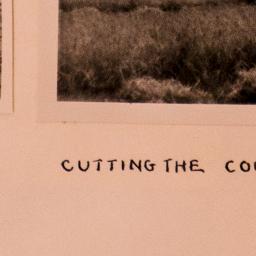 CUTTING THE CO